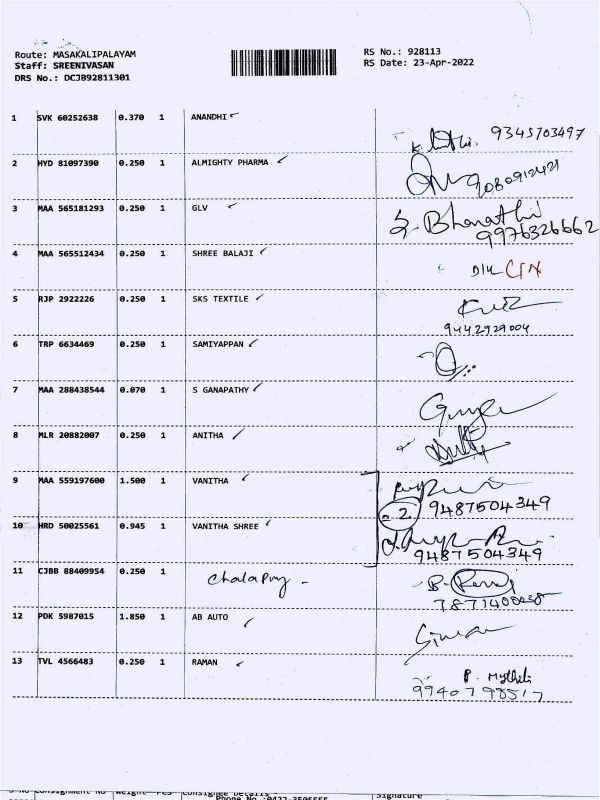 Route: MASAKALIPALAYAM
Staff: SREENIVASAN
DRS No.: DCJB92811301
RS No.: 928113
RS Date: 23-Apr-2022
1 SVK 60252638 0.370 1 ANANDHI
9345703497
2 HYD 81097390 0.250 1 ALMIGHTY PHARMA
3 MAA 565181293 0.250 1 GLV
S. Bharathi
9976326662
4 MAA 565512434 0.250 1 SHREE BALAJI
5 RJP 2922226 0.250 1 SKS TEXTILE
9442929004
6 TRP 6634469 0.250 1 SAMIYAPPAN
7 MAA 288438544 0.070 1 S GANAPATHY
8 MLR 20882007 0.250 1 ANITHA
9 MAA 559197600 1.500 1 VANITHA
9487504349
10 HRD 50025561 0.945 1 VANITHA SHREE
9487504349
11 CJBB 88409954 0.250 1
12 PDK 5987015 1.850 1 AB AUTO
13 TVL 4566483 0.250 1 RAMAN
P. Mythili
9940798517
Signature